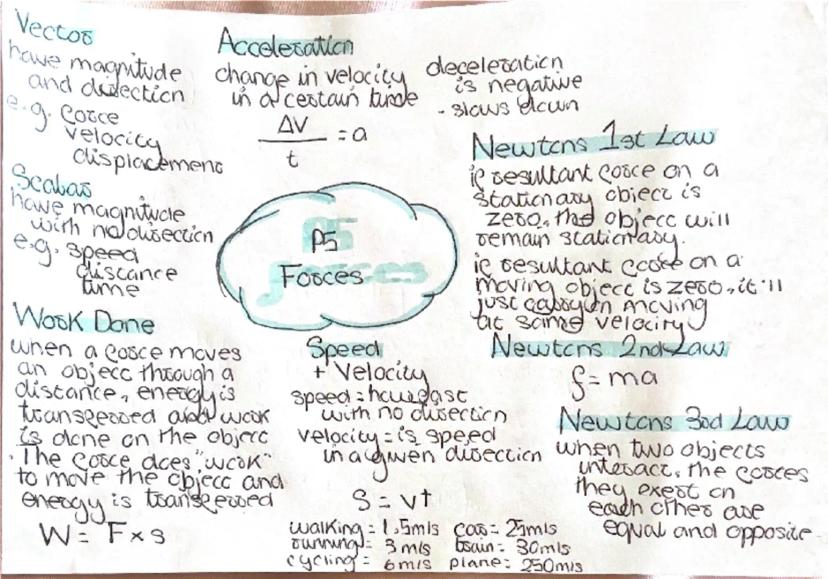 Vector
have magnitude
and direction
e.g. force
velocity
displacement
Scalar
have magnitude
with no direction
e.g. speed
distance
time
Work Done
when a force moves
an object through a
distance, energy is
transferred and work
is done on the object
· The force does "work"
to move the object and
energy is transferred
W = F × s
Acceleration
change in velocity
in a certain time
ΔV
t
= a
deceleration
is negative
- slows down
P5
Forces
Speed
+ Velocity
speed = how fast
with no direction
velocity = is speed
in a given direction
s = vt
walking = 1.5m/s
running = 3m/s
cycling = 6m/s
car = 25m/s
train = 30m/s
plane = 250m/s
Newtons 1st Law
if resultant force on a
stationary object is
zero, the object will
remain stationary.
if resultant force on a
moving object is zero, it'll
just carry on moving
at same velocity
Newtons 2nd Law
f = ma
Newtons 3rd Law
when two objects
interact, the forces
they exert on
each other are
equal and opposite